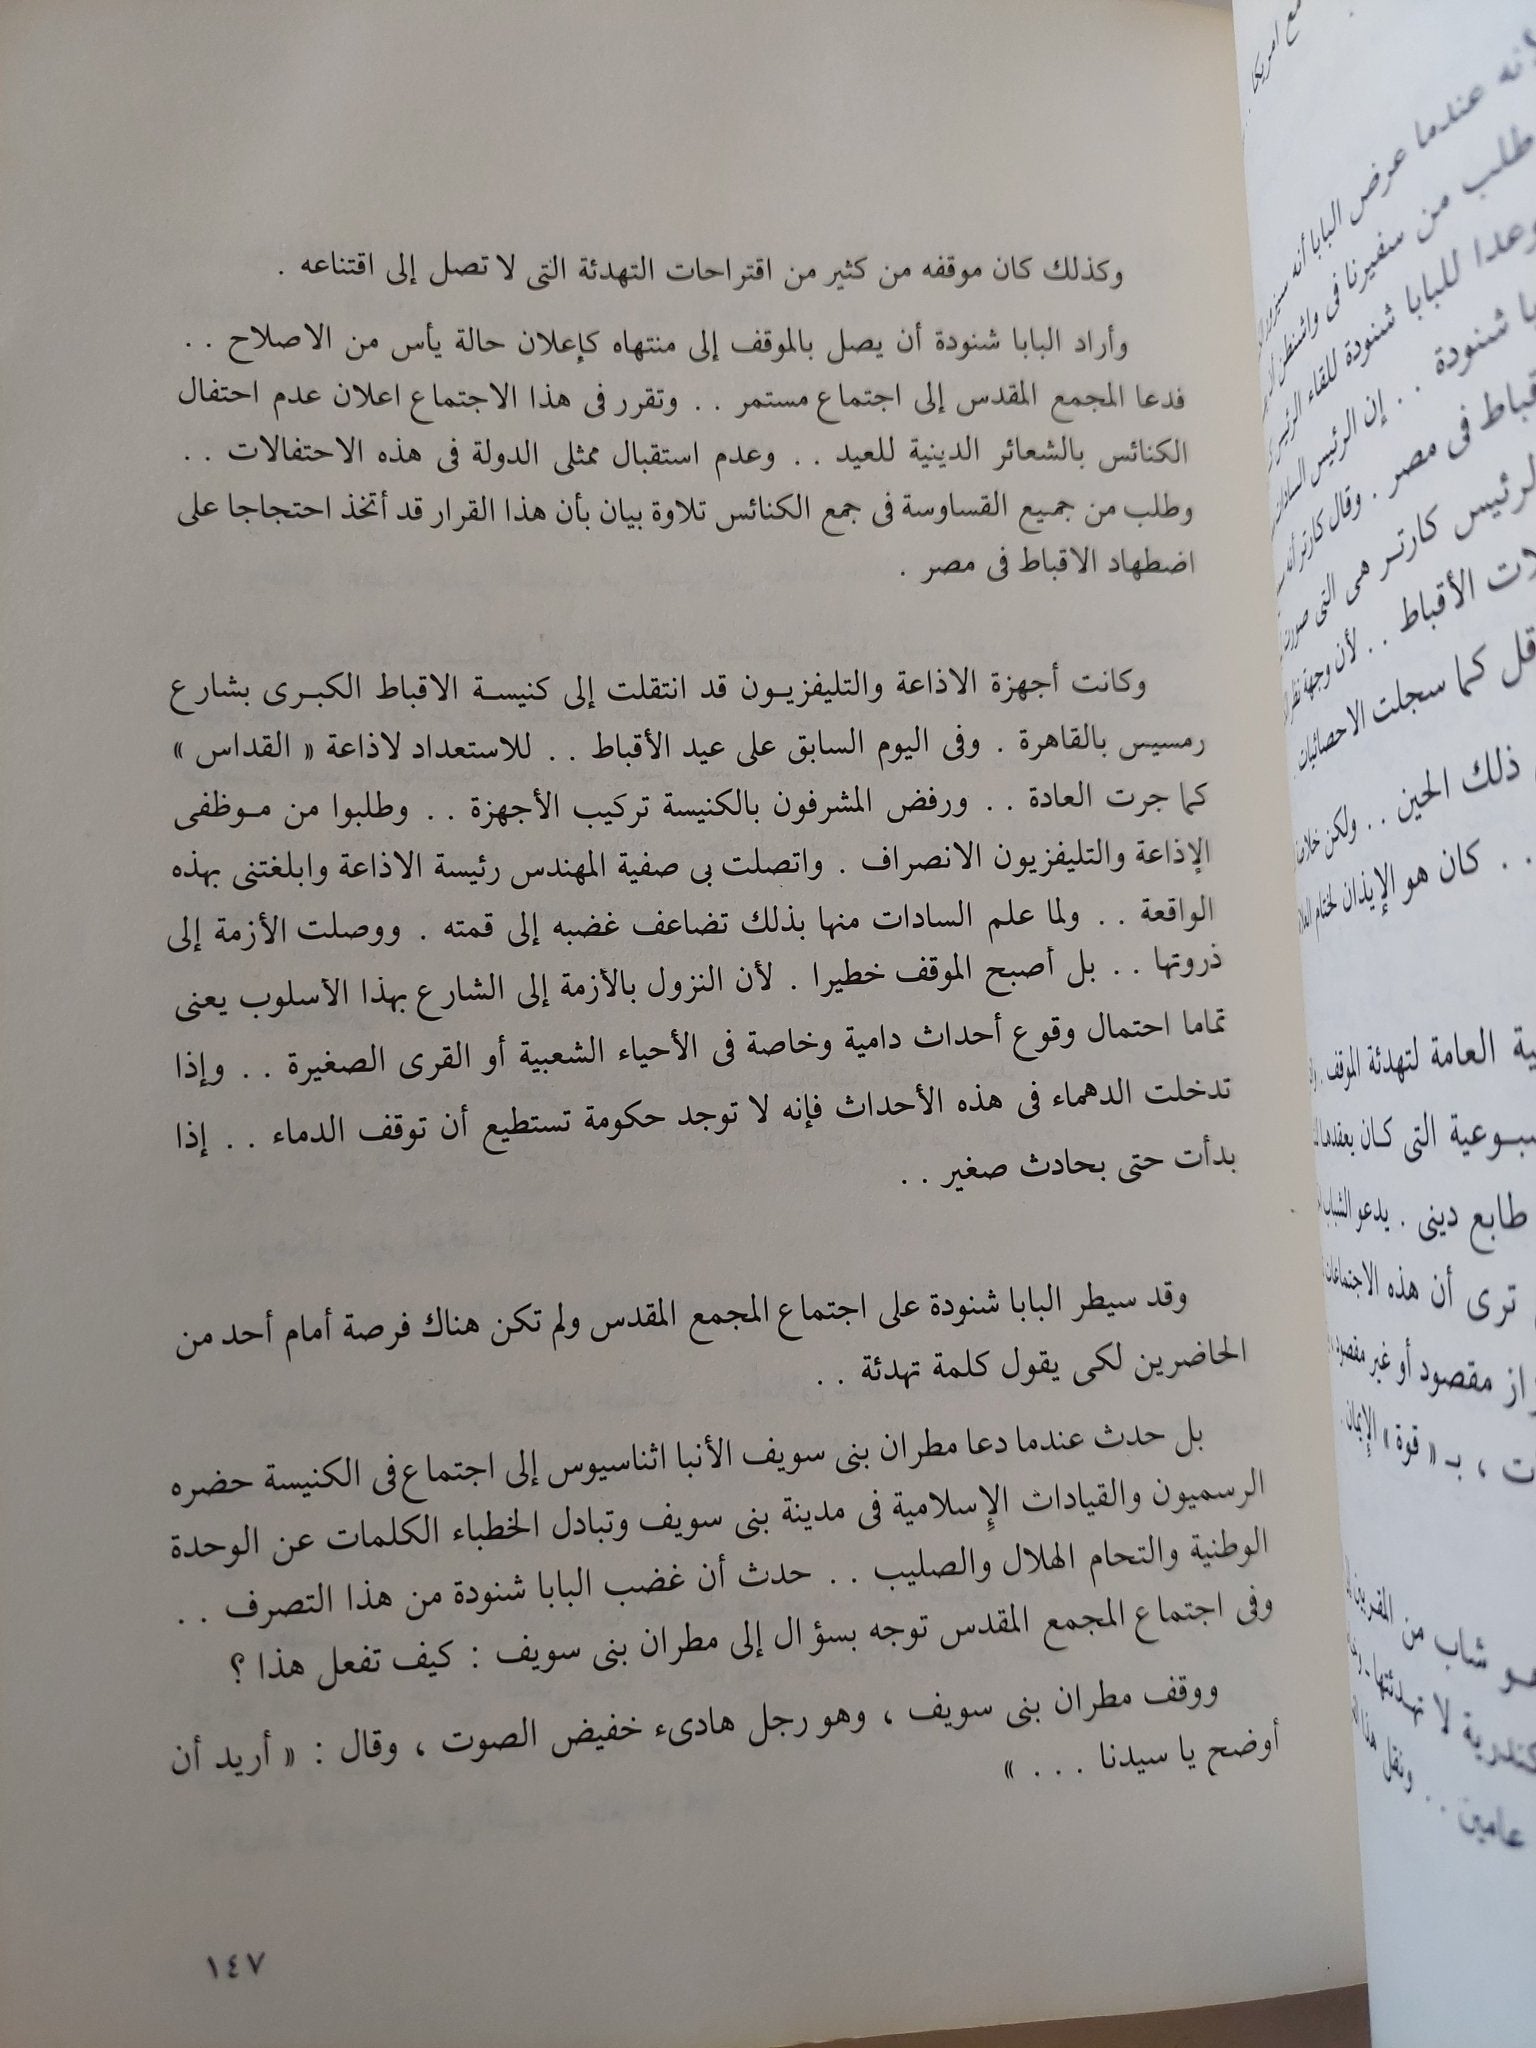 وكذلك كان موقفه من كثير من اقتراحات التهدئة التى لا تصل إلى اقتناعه .
وأراد البابا شنودة أن يصل بالموقف إلى منتهاه كإعلان حالة يأس من الاصلاح . .
فدعا المجمع المقدس إلى اجتماع مستمر . . وتقرر فى هذا الاجتماع اعلان عدم احتفال
الكنائس بالشعائر الدينية للعيد . . وعدم استقبال ممثلى الدولة فى هذه الاحتفالات . .
وطلب من جميع القساوسة فى جمع الكنائس تلاوة بيان بأن هذا القرار قد أتخذ احتجاجا على
اضطهاد الاقباط فى مصر .
وكانت أجهزة الاذاعة والتليفزيون قد انتقلت إلى كنيسة الاقباط الكبرى بشارع
رمسيس بالقاهرة . وفى اليوم السابق على عيد الأقباط . . للاستعداد لاذاعة « القداس »
كما جرت العادة . . ورفض المشرفون بالكنيسة تركيب الأجهزة . . وطلبوا من موظفى
الإذاعة والتليفزيون الانصراف . واتصلت بى صفية المهندس رئيسة الاذاعة وابلغتنى بهذه
الواقعة . . ولما علم السادات منها بذلك تضاعف غضبه إلى قمته . ووصلت الأزمة إلى
ذروتها . . بل أصبح الموقف خطيرا . لأن النزول بالأزمة إلى الشارع بهذا الاسلوب يعنى
تماما احتمال وقوع أحداث دامية وخاصة فى الأحياء الشعبية أو القرى الصغيرة . . وإذا
تدخلت الدهماء فى هذه الأحداث فإنه لا توجد حكومة تستطيع أن توقف الدماء . . إذا
بدأت حتى بحادث صغير . .
وقد سيطر البابا شنودة على اجتماع المجمع المقدس ولم تكن هناك فرصة أمام أحد من
الحاضرين لكى يقول كلمة تهدئة . .
بل حدث عندما دعا مطران بنى سويف الأنبا اثناسيوس إلى اجتماع فى الكنيسة حضره
الرسميون والقيادات الإسلامية فى مدينة بنى سويف وتبادل الخطباء الكلمات عن الوحدة
الوطنية والتحام الهلال والصليب . . حدث أن غضب البابا شنودة من هذا التصرف . .
وفى اجتماع المجمع المقدس توجه بسؤال إلى مطران بنى سويف : كيف تفعل هذا ؟
ووقف مطران بنى سويف ، وهو رجل هادىء خفيض الصوت ، وقال : « أريد أن
أوضح يا سيدنا . . . »
١٤٧
مع امريكا
عندما عرض البابا أنه
طلب من سفيرنا فى واشنطن
وعدا للبابا شنودة للقاء الرئيس
شنودة . . إن الرئيس السادات
فى مصر . وقال كارتر أنه
الرئيس كارتر هى التى
الأقباط . . لأن وجهة
كما سجلت الاحصائيات
ذلك الحين . . ولكن
. . كان هو الإيذان لختام
العامة لتهدئة الموقف .
التى كان يعقدها
طابع دينى . يدعو الشباب
ترى أن هذه الاجتماعات
مقصود أو غير مقصود
، بـ « قوة » الإيمان .
شاب من
لا تهدئتها
عامين . . ونقل هذا